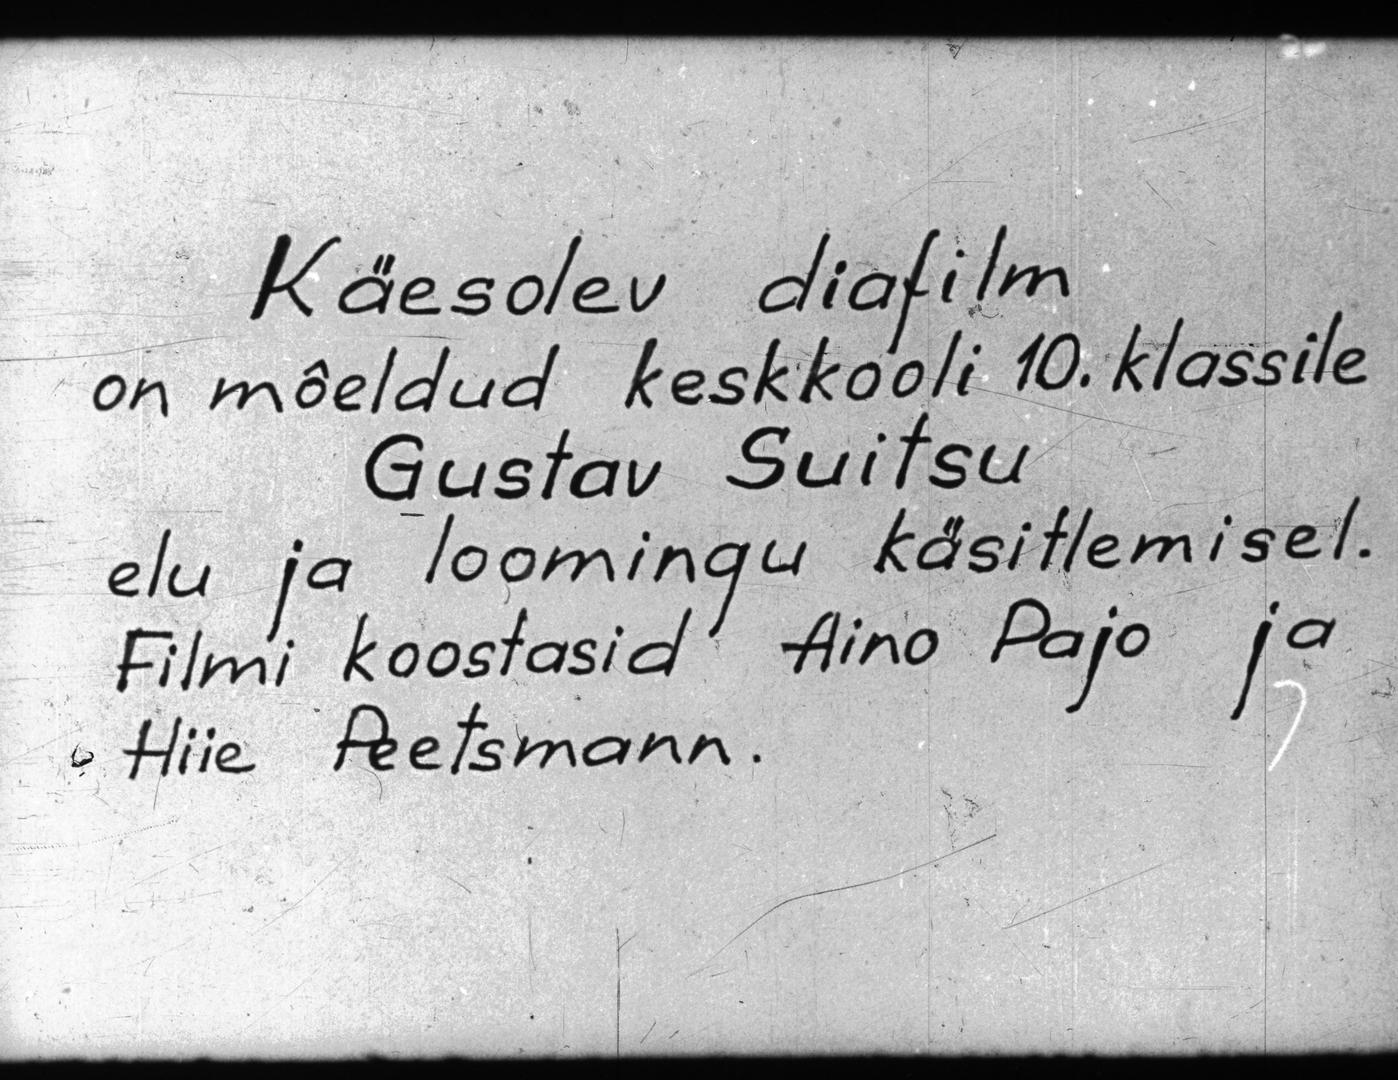 Käesolev diafilm
on mõeldud keskkooli 10. klassile
Gustav Suitsu
elu ja loomingu käsitlemisel.
Filmi koostasid Aino Pajo ja
Hiie Peetsmann.